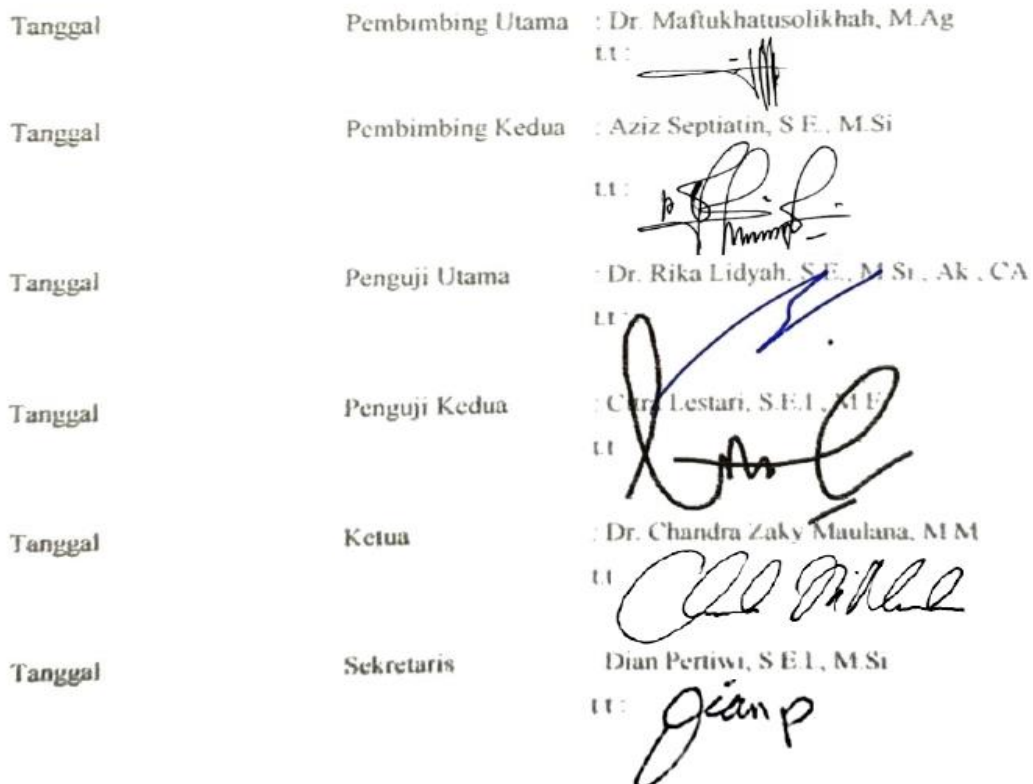 Tanggal Pembimbing Utama : Dr. Maftukhatusolikhah, M.Ag
t.t :
Tanggal Pembimbing Kedua : Aziz Septiatin, S E., M.Si
t.t :
Tanggal Penguji Utama : Dr. Rika Lidyah, S.E., M Si , Ak , CA
t.t :
Tanggal Penguji Kedua : Lestari, S.E.I , M E
t.t
Tanggal Ketua : Dr. Chandra Zaky Maulana, M M
t.t
Tanggal Sekretaris Dian Pertiwi, S E.I , M.Si
t.t :
Dian p